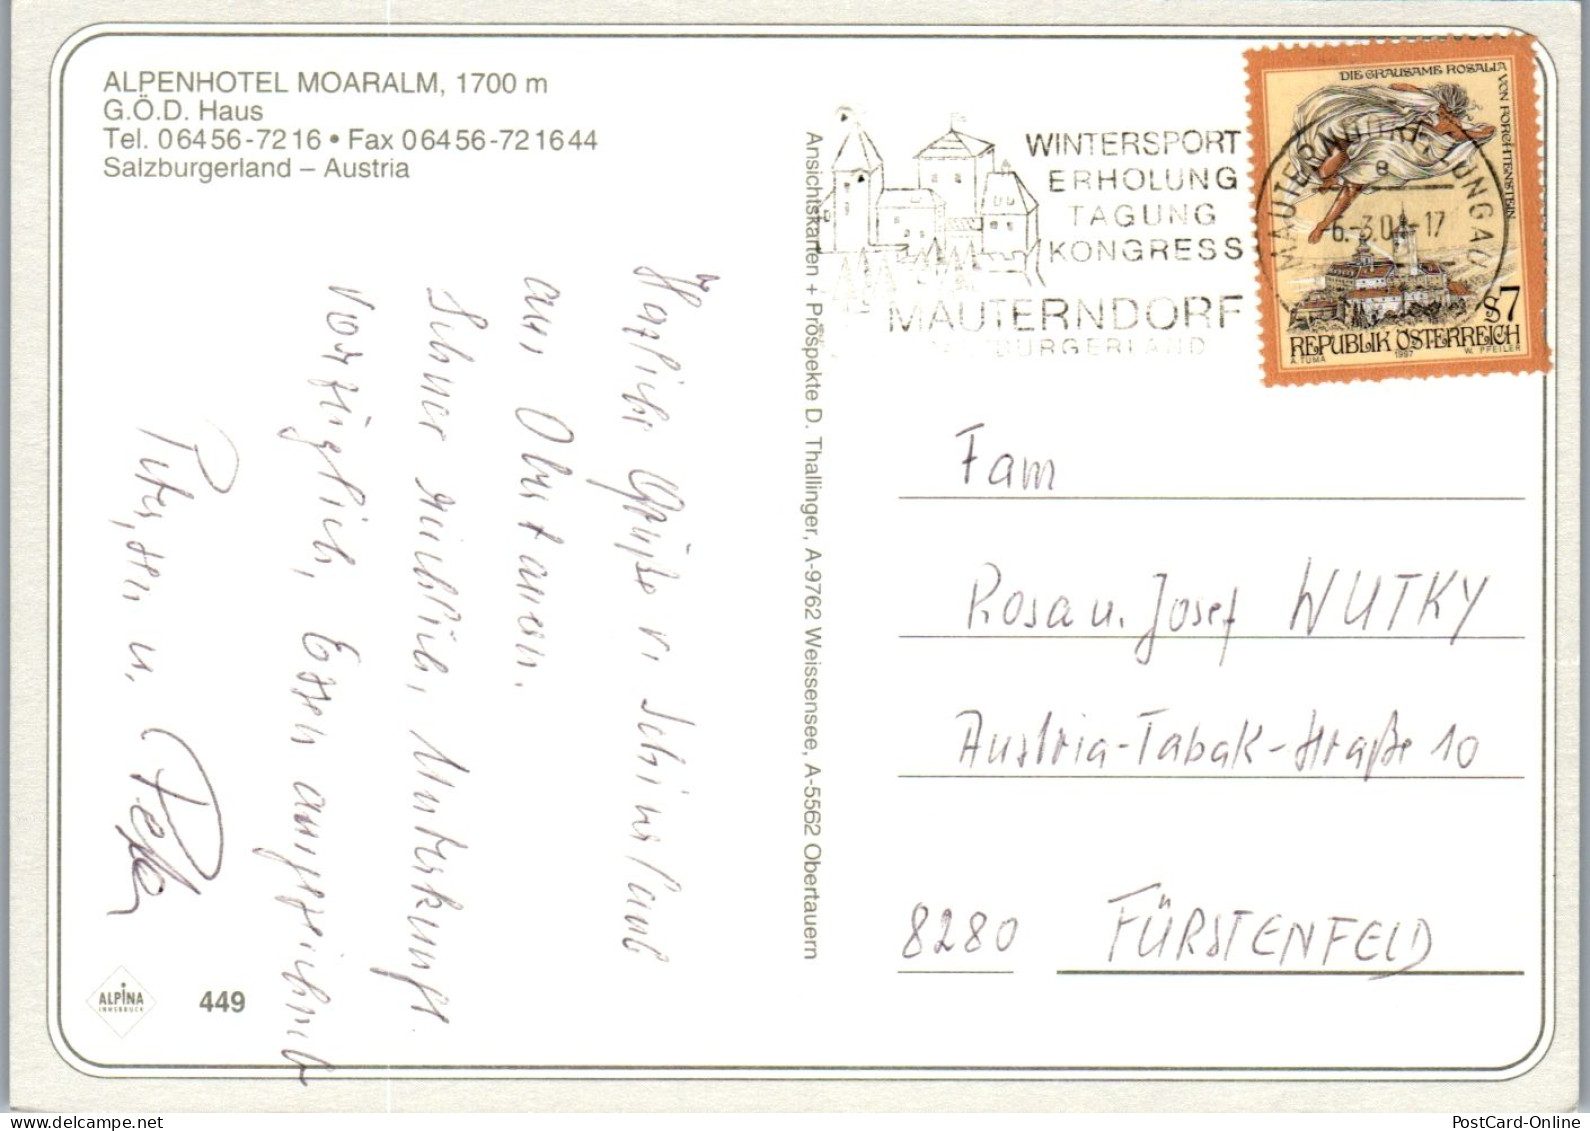 ALPENHOTEL MOARALM, 1700 m
G.Ö.D. Haus
Tel. 06456-7216 • Fax 06456-721644
Salzburgerland – Austria
Herzliche Grüße v. Schiurlaub
aus Obertauern.
Schnee reichlich, Unterkunft
vorzüglich, Essen ausgezeichnet
Peter, u.
Peter
ALPINA
INNSBRUCK
449
Ansichtskarten + Prospekte D. Thallinger, A-9762 Weissensee, A-5562 Obertauern
WINTERSPORT
ERHOLUNG
TAGUNG
KONGRESS
MAUTERNDORF
SALZBURGERLAND
MAUTERNDORF, LUNGAU
a
-6.-3.0 -17
DIE GRAUSAME ROSALIA
VON FORCHTENSTEIN
S7
REPUBLIK ÖSTERREICH
A. TUMA 1997 W. PFEILER
Fam
Rosa u. Josef WUTKY
Austria-Tabak-Straße 10
8280 FÜRSTENFELD
PostCard-Online